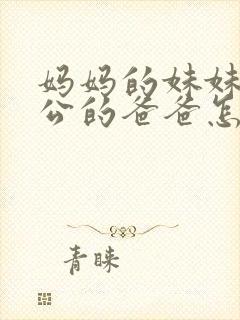 妈妈的妹妹
公的爸爸怎
青睐